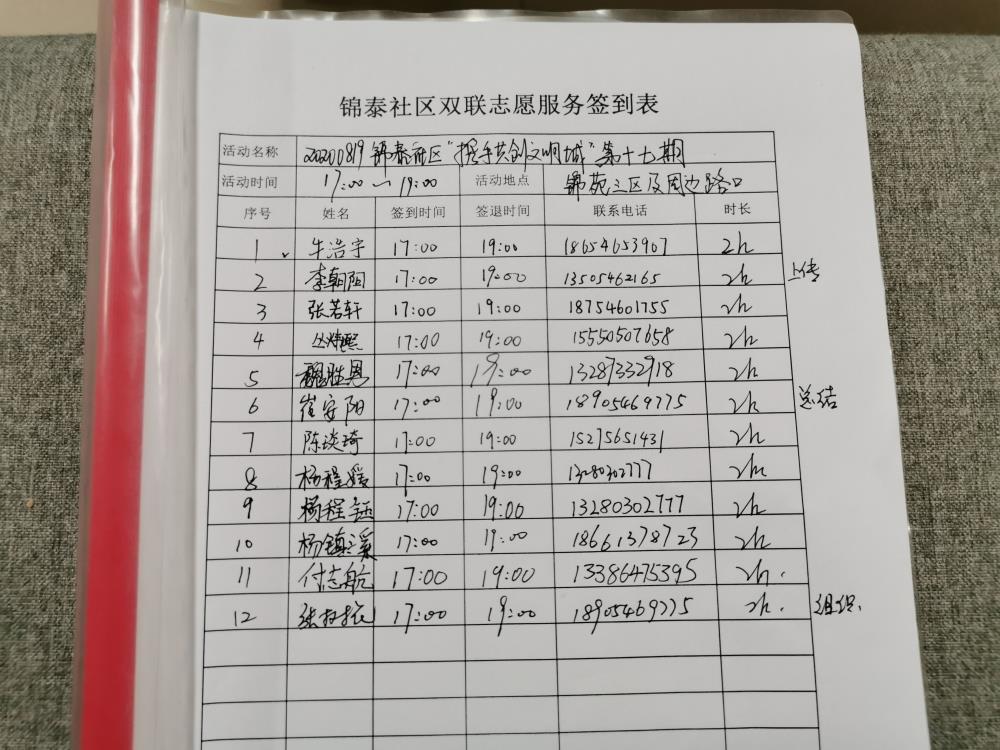 锦泰社区双联志愿服务签到表
活动名称 20200819锦泰社区"携手共创文明城"第十七期
活动时间 17:00~19:00 活动地点 锦苑三区及周边路口
序号 姓名 签到时间 签退时间 联系电话 时长
1 牛浩宇 17:00 19:00 18654653907 2h
2 李朝阳 17:00 19:00 13505462165 2h 上传
3 张若轩 17:00 19:00 18754601755 2h
4 丛炜熙 17:00 19:00 15550507658 2h
5 胜恩 17:00 19:00 13287332918 2h
6 崔安阳 17:00 19:00 18905469775 2h 总结
7 陈琰琦 17:00 19:00 15275651431 2h
8 杨程媛 17:00 19:00 13280302777 2h
9 杨程钰 17:00 19:00 13280302777 2h
10 杨镇溪 17:00 19:00 18661378723 2h
11 付志航 17:00 19:00 13386475395 2h.
12 张 17:00 19:00 18905469775 2h. 组织.